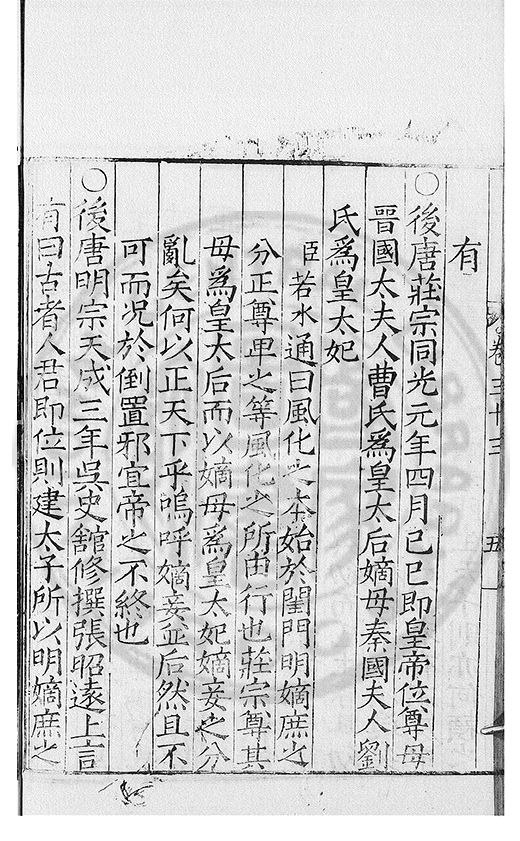 卷三十三
五
有
○後唐莊宗同光元年四月己巳即皇帝位尊母
晉國太夫人曹氏爲皇太后嫡母秦國夫人劉
氏爲皇太妃
臣若水通曰風化之本始於閨門明嫡庶之
分正尊卑之等風化之所由行也莊宗尊其
母爲皇太后而以嫡母爲皇太妃嫡妾之分
亂矣何以正天下乎嗚呼嫡妾並后然且不
可而况於倒置邪宜帝之不終也
○後唐明宗天成三年吳史舘修撰張昭遠上言
有曰古者人君即位則建太子所以明嫡庶之